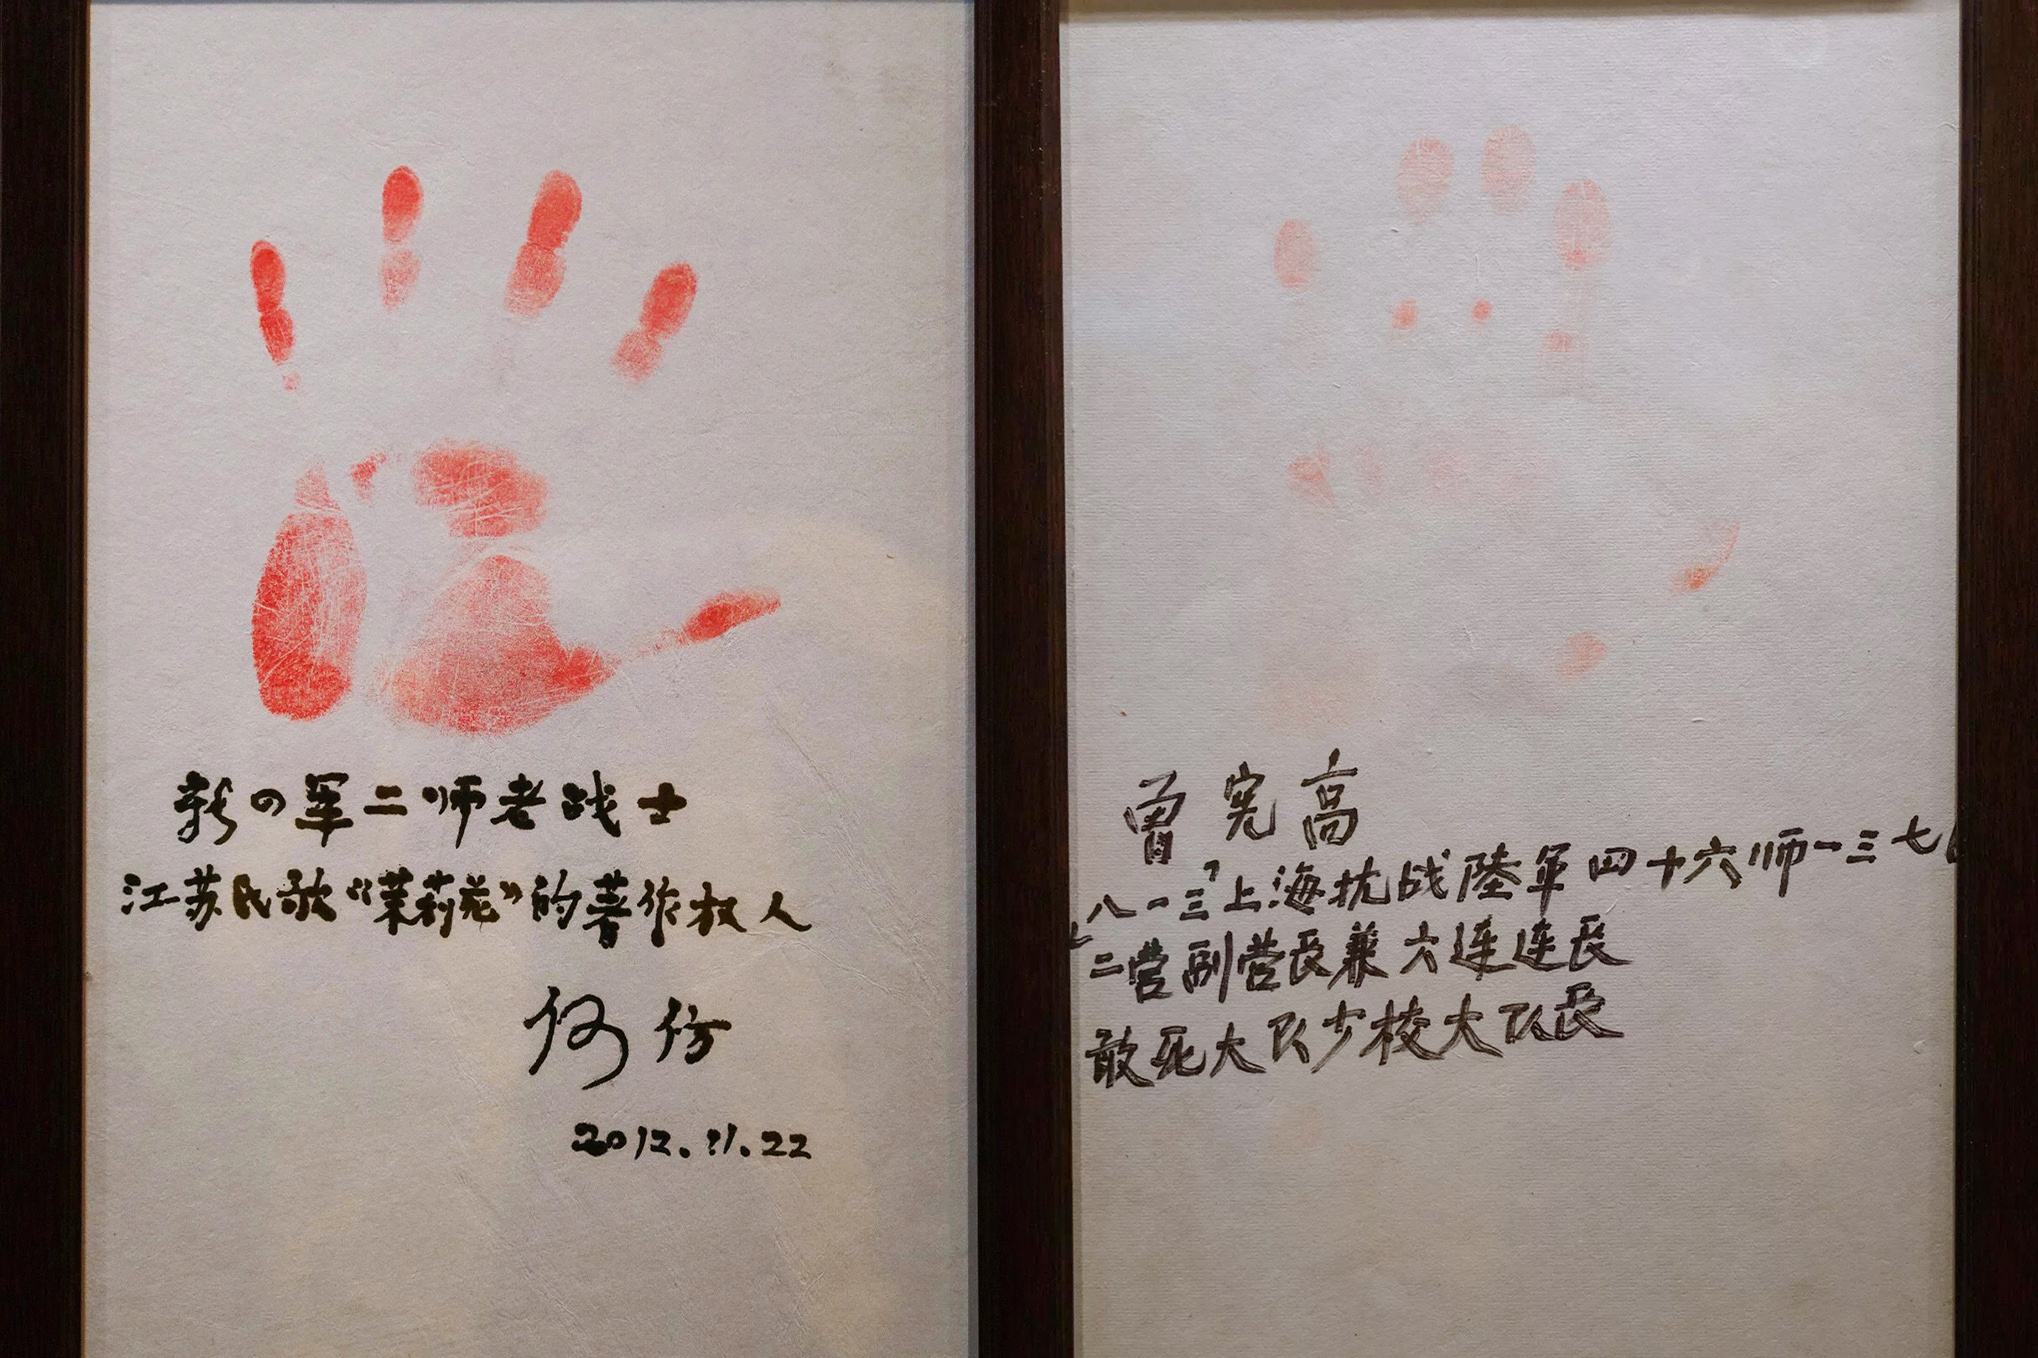 新四军二师老战士
江苏民歌“茉莉花”的著作权人
何仿
2012.11.22
曾宪高
八一三上海抗战陸軍四十六师一三七
二营副营長兼六连连長
敢死大队少校大队長